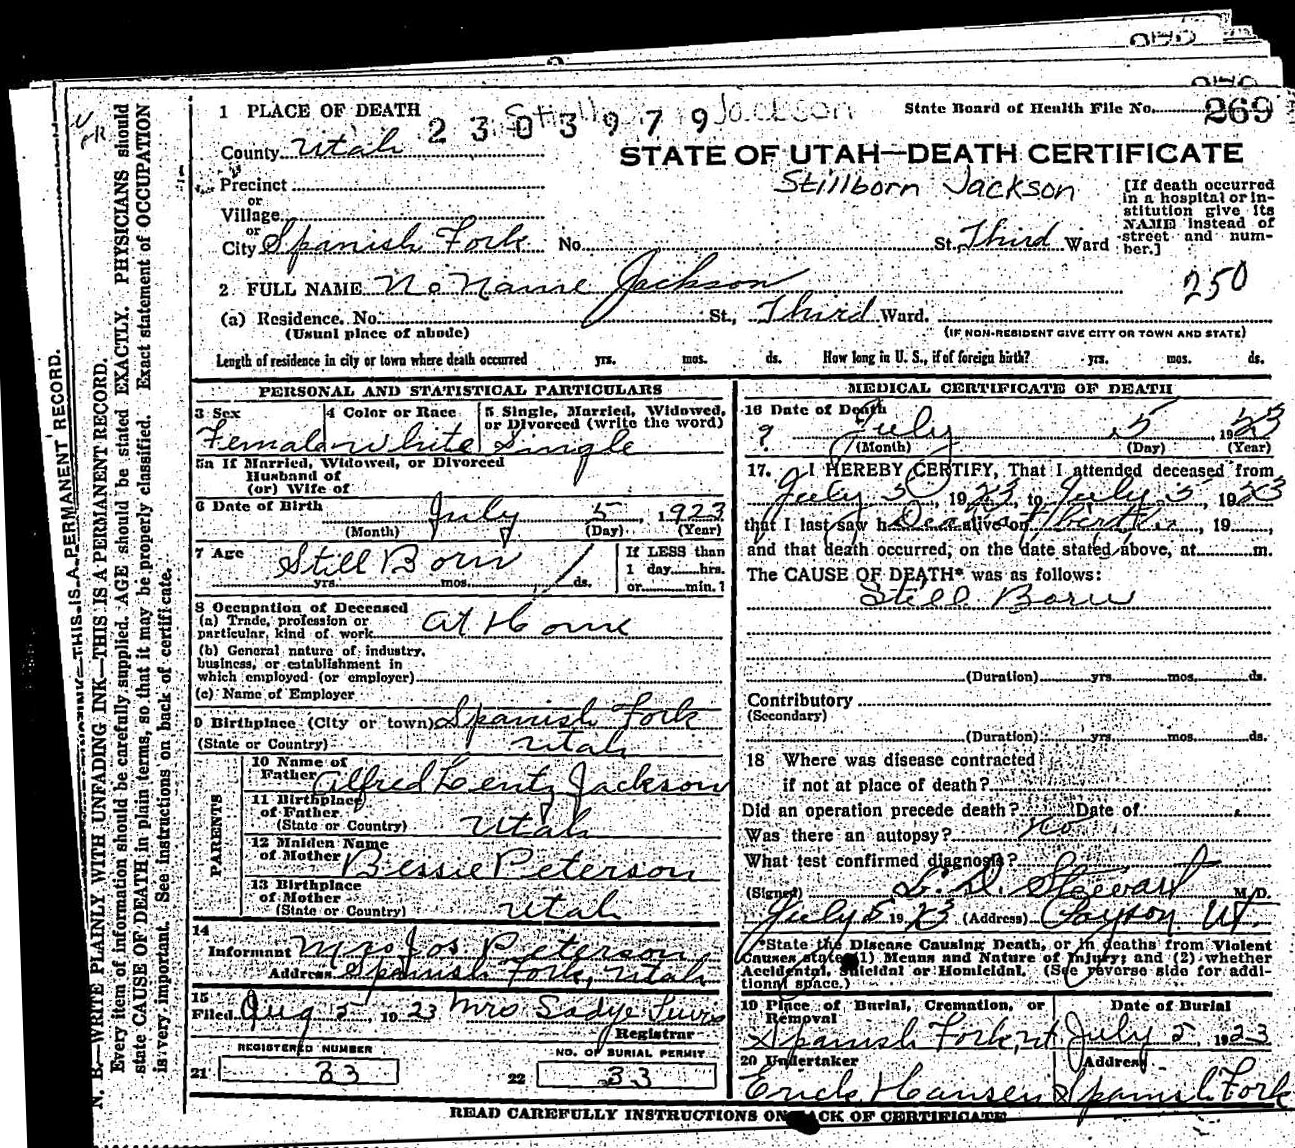 269
1 PLACE OF DEATH
Stillb Jackson
State Board of Health File No. 269
2303979
County Utah
STATE OF UTAH—DEATH CERTIFICATE
Precinct
Stillborn Jackson
or
Village
or
City Spanish Fork No. St. Third Ward
[If death occurred in a hospital or institution give its NAME instead of street and number.]
2 FULL NAME No Name Jackson
250
(a) Residence. No. St., Third Ward.
(Usual place of abode) (IF NON-RESIDENT GIVE CITY OR TOWN AND STATE)
Length of residence in city or town where death occurred yrs. mos. ds. How long in U. S., if of foreign birth? yrs. mos. ds.
PERSONAL AND STATISTICAL PARTICULARS
3 Sex 4 Color or Race 5 Single, Married, Widowed, or Divorced (write the word)
Female White Single
5a If Married, Widowed, or Divorced
Husband of
(or) Wife of
6 Date of Birth July 5, 1923
(Month) (Day) (Year)
7 Age Still Born
yrs. mos. ds.
If LESS than
1 day hrs.
or min.?
8 Occupation of Deceased
(a) Trade, profession or
particular, kind of work at Home
(b) General nature of industry,
business, or establishment in
which employed (or employer)
(c) Name of Employer
9 Birthplace (City or town) Spanish Fork
(State or Country) Utah
PARENTS
10 Name of
Father Alfred Lentz Jackson
11 Birthplace
of Father
(State or Country) Utah
12 Maiden Name
of Mother Bessie Peterson
13 Birthplace
of Mother
(State or Country) Utah
14
Informant Mrs Jos Peterson
Address Spanish Fork, Utah
15
Filed Aug 5 1923 Mrs Sadye
Registrar
REGISTERED NUMBER NO. OF BURIAL PERMIT
21 33 22 33
MEDICAL CERTIFICATE OF DEATH
16 Date of Death
? July 5, 1923
(Month) (Day) (Year)
17. I HEREBY CERTIFY, That I attended deceased from
July 5, 1923 to July 5, 1923
that I last saw h Dead at birth alive on , 19 ,
and that death occurred, on the date stated above, at m.
The CAUSE OF DEATH* was as follows:
Still Born
(Duration) yrs. mos. ds.
Contributory
(Secondary)
(Duration) yrs. mos. ds.
18 Where was disease contracted
if not at place of death?
Did an operation precede death? Date of
Was there an autopsy? No
What test confirmed diagnosis?
(Signed) L. D. Stewart M.D.
July 5 1923 (Address) Payson Ut.
*State the Disease Causing Death, or in deaths from Violent
Causes state (1) Means and Nature of Injury; and (2) whether
Accidental, Suicidal or Homicidal. (See reverse side for addi-
tional space.)
19 Place of Burial, Cremation, or Removal Date of Burial
Spanish Fork, Ut July 5, 1923
20 Undertaker Address
Erick Hansen Spanish Fork
READ CAREFULLY INSTRUCTIONS ON BACK OF CERTIFICATE
THIS IS A PERMANENT RECORD.
N. B.—WRITE PLAINLY WITH UNFADING INK—THIS IS A PERMANENT RECORD.
Every item of information should be carefully supplied. AGE should be stated EXACTLY. PHYSICIANS should
state CAUSE OF DEATH in plain terms, so that it may be properly classified. Exact statement of OCCUPATION
is very important. See instructions on back of certificate.